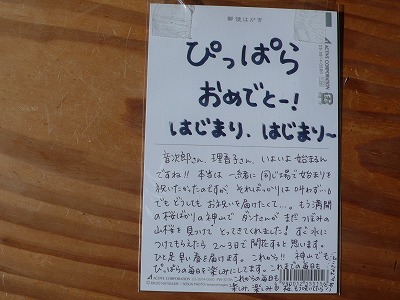 郵便はがき
ぴっぱら
おめでとー!
はじまり、はじまり〜
音次郎さん、理香子さん、いよいよ始まるん
ですね!! 本当は一緒に同じ場で始まりを
祝いたかったのですが、そればっかりは叶わず…。
でもどうしてもお祝いを届けたくて…。もう満開
の桜ばかりの神山で ダンさんが まだつぼみの
山桜を見つけて とってきてくれました! すぐ水に
つけてもらえたら 2〜3日で開花すると思います。
ひと足早い春を届けます。これから!! 神山でも
ぴっぱらの毎日を楽しみにしてます。これまでの毎日も
これからの毎日も
ACTIVE CORPORATION